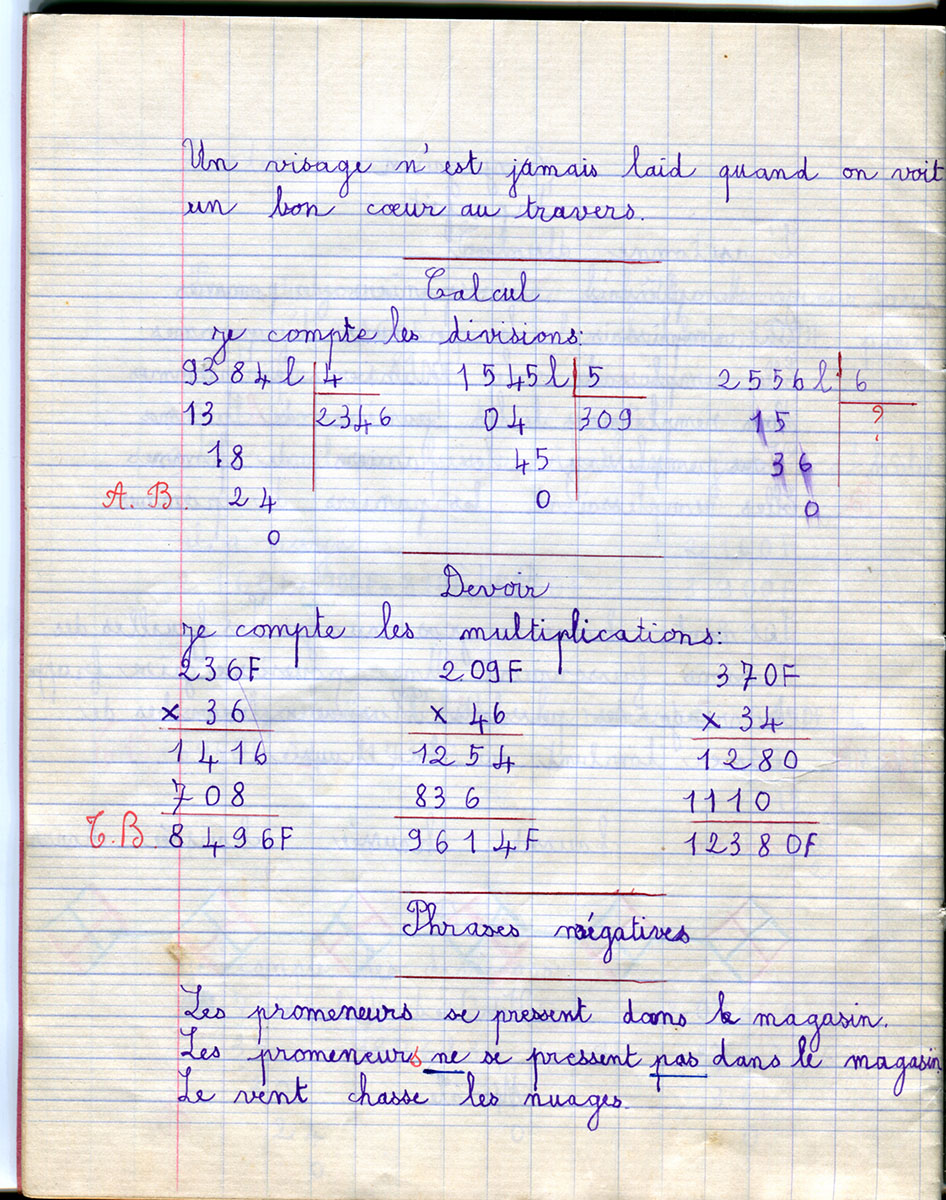 Un visage n'est jamais laid quand on voit
un bon cœur au travers.
Calcul
je compte les divisions:
9384l 4 1545l 5 2556l 6
13 2346 04 309 15 ?
18 45 36
A.B. 24 0 0
0
Devoir
je compte les multiplications:
236F 209F 370F
x 36 x 46 x 34
1416 1254 1280
708 836 1110
T.B. 8496F 9614F 12380F
Phrases négatives
Les promeneurs se pressent dans le magasin.
Les promeneurs ne se pressent pas dans le magasin
Le vent chasse les nuages.